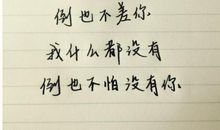 倒也不差你
我什么都没有
倒也不怕没有你